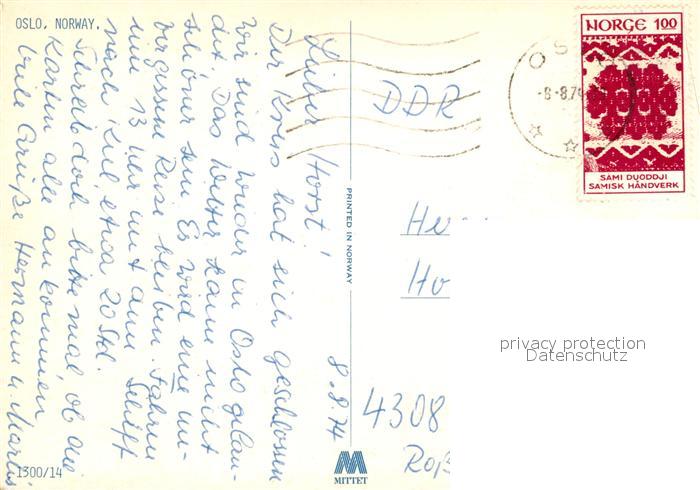 OSLO, NORWAY.
8.8.74
Lieber Horst!
Der Kreis hat sich geschlossen
wir sind wieder in Oslo gelan-
det. Das Wetter kann nicht
schöner sein. Es wird eine un-
vergessene Reise bleiben. Fahren
um 13 Uhr mit dem Schiff
nach Kiel etwa 20 Std.
Schreib doch bitte mal, ob die
Karten alle ankommen
Viele Grüße Hermann u.
1300/14
PRINTED IN NORWAY
MITTET
NORGE 100
SAMI DUODDJI
SAMISK HÅNDVERK
OS
-8-8.74
DDR
He
Ho
4308
Roß
privacy protection
Datenschutz